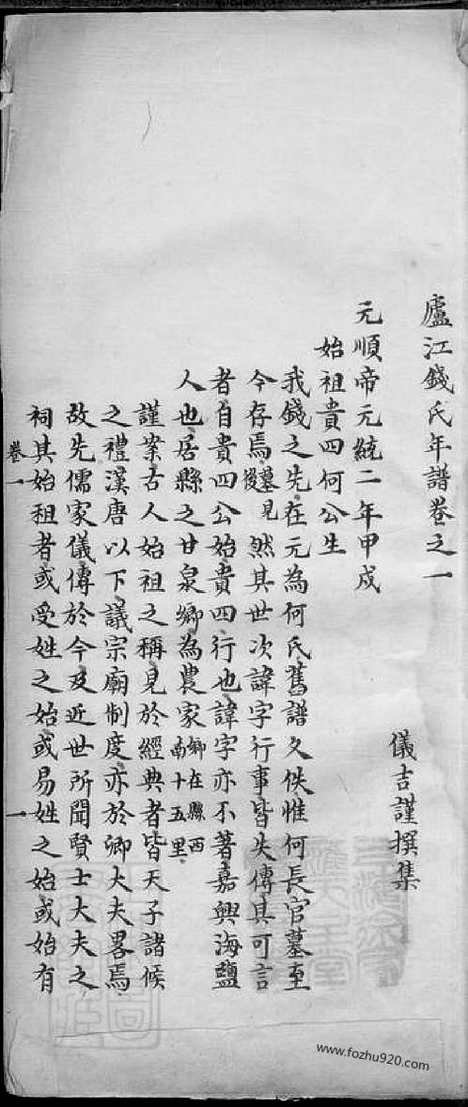 廬江錢氏年譜卷之一
儀吉謹撰集
元順帝元統二年甲戌
始祖貴四何公生
我錢之先在元為何氏舊譜久佚惟何長官墓至
今存焉墓見後然其世次諱字行事皆失傳其可言
者自貴四公始貴四行也諱字亦不著嘉興海鹽
人也居縣之甘泉鄉為農家鄉在縣西南十五里
謹案古人始祖之稱見於經典者皆天子諸候
之禮漢唐以下議宗廟制度亦於卿大夫畧焉
故先儒家儀傳於今及近世所聞賢士大夫之
祠其始祖者或受姓之始或易姓之始或始有
卷一
一
www.fozhu920.com